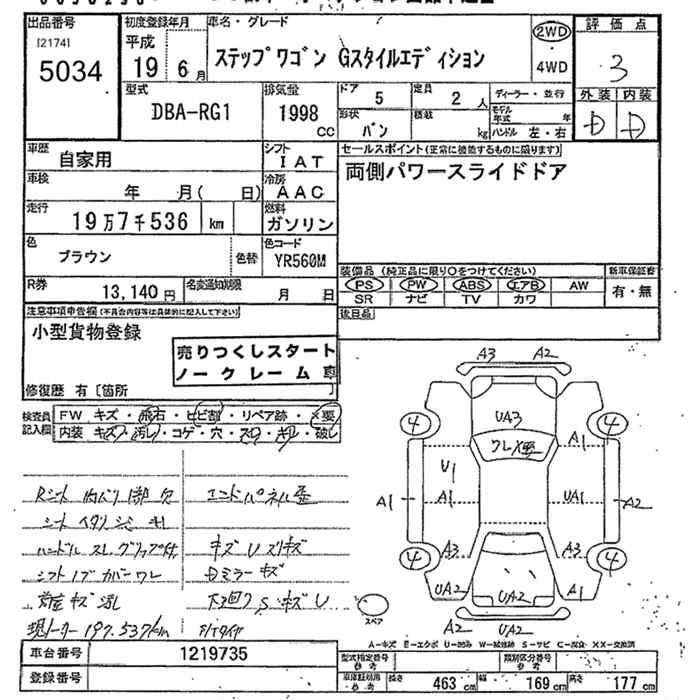 出品番号
[2174]
5034
初度登録年月
平成
19 6月
車名・グレード
ステップワゴン Gスタイルエディション
2WD
4WD
評価点
3
外装 内装
D D
型式
DBA-RG1
排気量
1998
cc
ドア
5
定員
2 人
形状
バン
積載
kg
ディーラー・並行
モデル年式 年
ハンドル 左・右
車歴
自家用
シフト
IAT
車検
年 月( 日)
冷房
AAC
走行
19万7千536 km
燃料
ガソリン
色
ブラウン
色替
色コード
YR560M
R券
13,140円
名変通知期限
月 日
セールスポイント(正常に機能するものに限ります)
両側パワースライドドア
装備品(純正品に限り○をつけてください)
PS PW ABS エアB AW
SR ナビ TV カワ
新車保証書
有・無
後日品
注意事項申告欄(不具合内容等は具体的に記入して下さい)
小型貨物登録
売りつくしスタート
ノークレーム車
修復歴 有[箇所 ]
検査員記入欄
FW キズ・飛石・ヒビ割・リペア跡・×要
内装 キズ・汚レ・コゲ・穴・スレ・キレ・破レ
Rシート 内バリ 1部欠
シート ヘタリ シミ キレ
ハンドル スレ グリップ付
シフトノブ カバー ワレ
現メーター 197,537km
エンドパネル歪
キズ U スリキズ
Dミラー キズ
下回り S、キズ U
A3 A2
UA3
ワレ×要
4 4
A1
U1
A1 A1 UA1 A2
A3 A3
4 4
UA2 UA2 A1
A2 UA2
スペア
A-キズ E-エクボ U-凹み W-補修跡 S-サビ C-腐食 XX-交換済
車台番号
1219735
登録番号
型式指定番号
参考
類別区分番号
参考
車庫証明用
参考
長さ 463 cm
幅 169 cm
高さ 177 cm